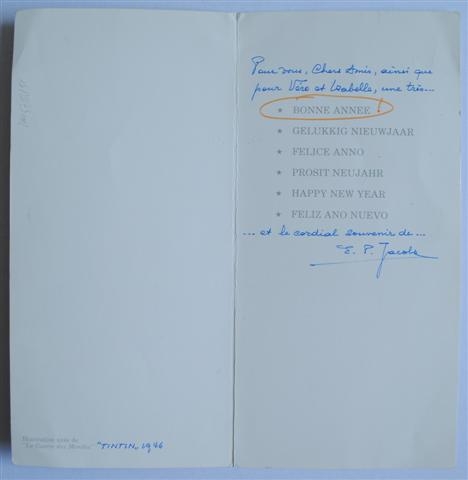 Illustration tirée de
"La Guerre des Mondes" "TINTIN" 1946
Pour vous, Chers Amis, ainsi que
pour Véro et Isabelle, une très...
★ BONNE ANNEE !
★ GELUKKIG NIEUWJAAR
★ FELICE ANNO
★ PROSIT NEUJAHR
★ HAPPY NEW YEAR
★ FELIZ ANO NUEVO
... et le cordial souvenir de ...
E. P. Jacobs